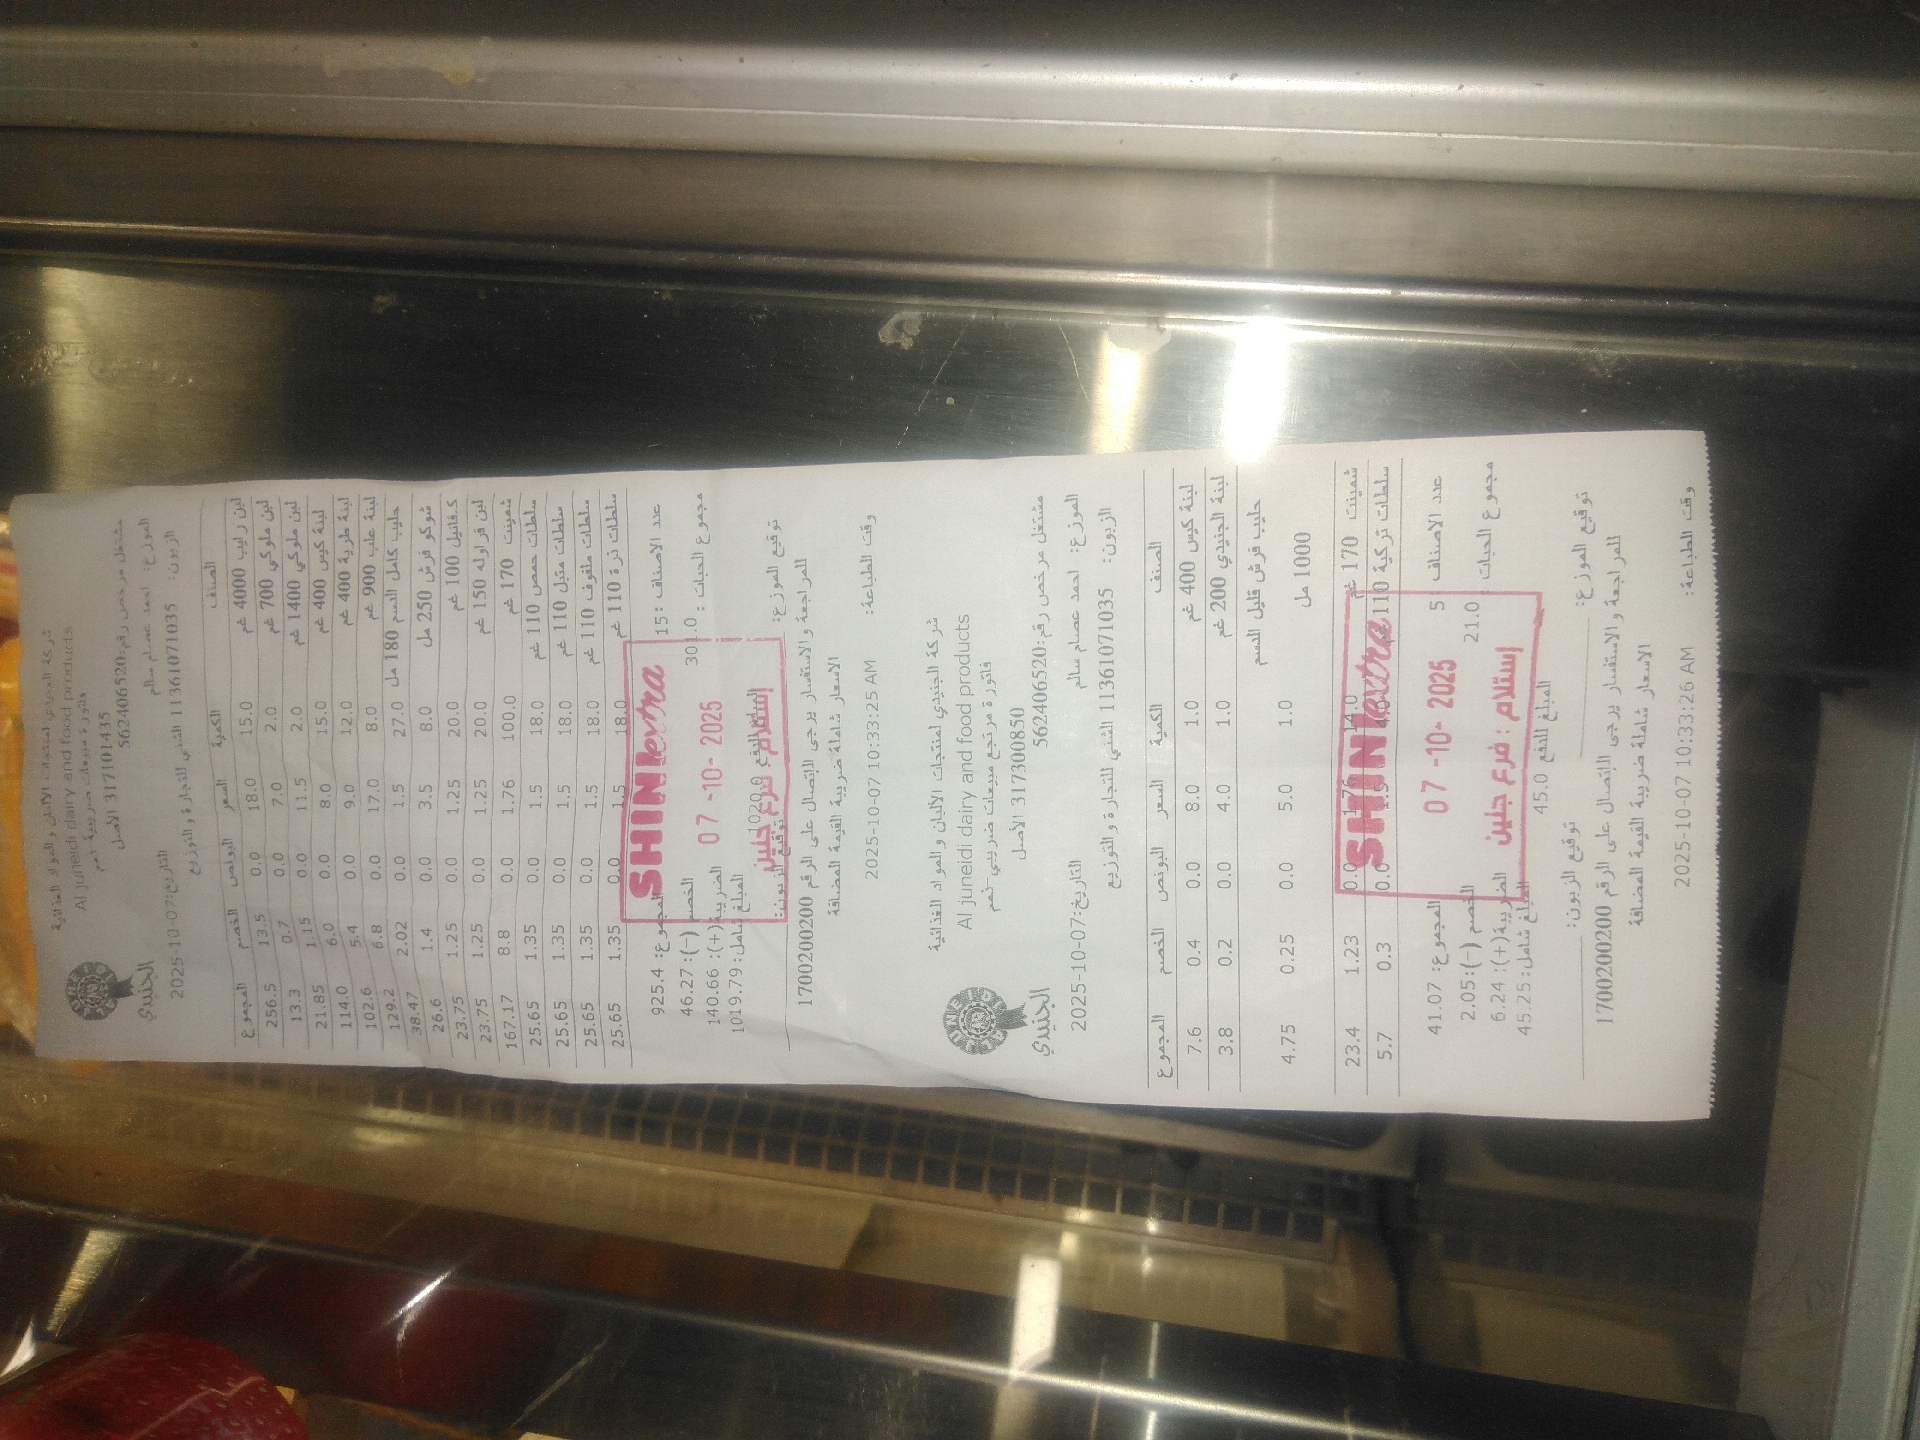 شركة الجنيدي لمنتجات الالبان والمواد الغذائية
Al juneidi dairy and food products
فاتورة مبيعات ضريبية نعم
317101435 الأصل
مشتغل مرخص رقم:562406520
الموزع: احمد عصام سالم
الجنيدي
التاريخ:07-10-2025
الزبون: 11361071035 الشني للتجارة والتوزيع
الصنف الكمية السعر البونص الخصم المجموع
لبن رايب 4000 غم 15.0 18.0 0.0 13.5 256.5
لبن ملوكي 700 غم 2.0 7.0 0.0 0.7 13.3
لبن ملوكي 1400 غم 2.0 11.5 0.0 1.15 21.85
لبنة كيس 400 غم 15.0 8.0 0.0 6.0 114.0
لبنة طرية 400 غم 12.0 9.0 0.0 5.4 102.6
لبنة علب 900 غم 8.0 17.0 0.0 6.8 129.2
حليب كامل الدسم 180 مل 27.0 1.5 0.0 2.02 38.47
شوكو فرش 250 مل 8.0 3.5 0.0 1.4 26.6
ك.فانيل 100 غم 20.0 1.25 0.0 1.25 23.75
لبن فراوله 150 غم 20.0 1.25 0.0 1.25 23.75
شمينت 170 غم 100.0 1.76 0.0 8.8 167.17
سلطات حمص 110 غم 18.0 1.5 0.0 1.35 25.65
سلطات متبل 110 غم 18.0 1.5 0.0 1.35 25.65
سلطات ملفوف 110 غم 18.0 1.5 0.0 1.35 25.65
سلطات ذرة 110 غم 18.0 1.5 0.0 1.35 25.65
عدد الاصناف : 15 المجموع: 925.4
SHINIextra
مجموع الحبات : 301.0 الخصم (-): 46.27
07 -10- 2025
الضريبة(+): 140.66
المبلغ شامل: 1019.79
المبلغ للدفع 1020.0
إستلام : فرع جنين
توقيع الموزع: توقيع الزبون:
للمراجعة والاستفسار يرجى الإتصال على الرقم 1700200200
الاسعار شاملة ضريبة القيمة المضافة
وقت الطباعة: 2025-10-07 10:33:25 AM
شركة الجنيدي لمنتجات الالبان والمواد الغذائية
Al juneidi dairy and food products
فاتورة مرتجع مبيعات ضريبي نعم
317300850 الأصل
مشتغل مرخص رقم:562406520
JUNEIDI
الجنيدي
الموزع: احمد عصام سالم التاريخ:07-10-2025
الزبون: 11361071035 الشني للتجارة والتوزيع
الصنف الكمية السعر البونص الخصم المجموع
لبنة كيس 400 غم 1.0 8.0 0.0 0.4 7.6
لبنة الجنيدي 200 غم 1.0 4.0 0.0 0.2 3.8
حليب فرش قليل الدسم 1000 مل 1.0 5.0 0.0 0.25 4.75
شمينت 170 غم 14.0 1.76 0.0 1.23 23.4
سلطات تركية 110 غم 4.0 1.5 0.0 0.3 5.7
SHINIextra
عدد الاصناف : 5 المجموع: 41.07
07 -10- 2025
مجموع الحبات : 21.0 الخصم (-): 2.05
الضريبة(+): 6.24
إستلام : فرع جنين
المبلغ شامل: 45.25
المبلغ للدفع 45.0
توقيع الموزع: توقيع الزبون:
للمراجعة والاستفسار يرجى الإتصال على الرقم 1700200200
الاسعار شاملة ضريبة القيمة المضافة
وقت الطباعة: 2025-10-07 10:33:26 AM